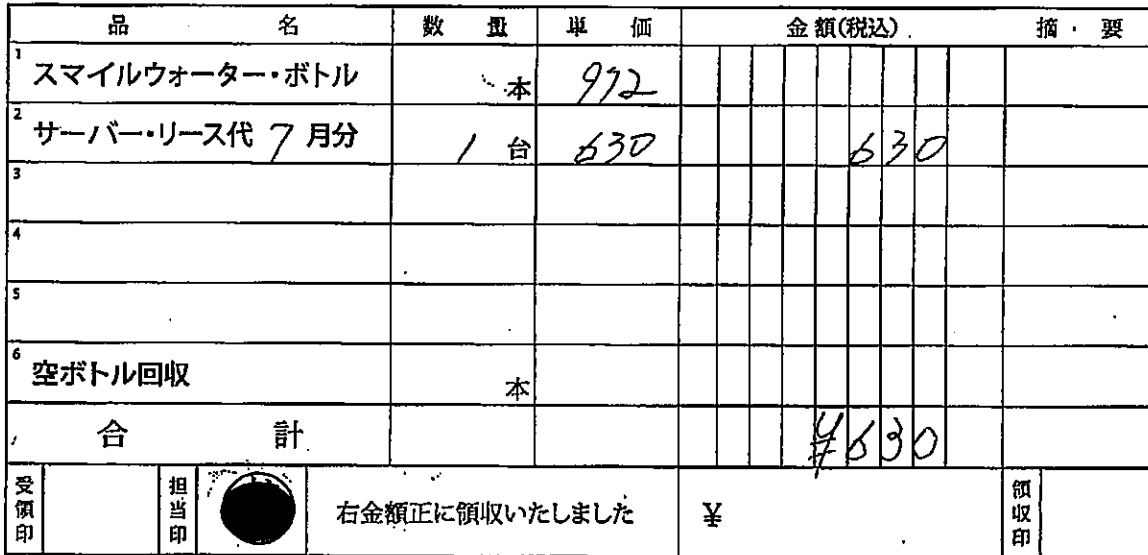 品 名 数 量 単 価 金額(税込) 摘・要
1 スマイルウォーター・ボトル 本 972
2 サーバー・リース代 7 月分 1 台 630 630
3
4
5
6 空ボトル回収 本
合 計 ¥630
受領印 担当印 右金額正に領収いたしました ¥ 領収印